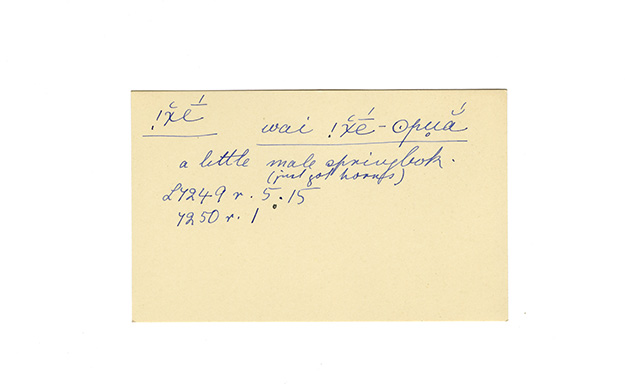 !x̌é wai !x̌é-ʘpu̥ǎ́
a little male springbok.
(just got horns)
L7249 r. 5. 15
7250 r. 1